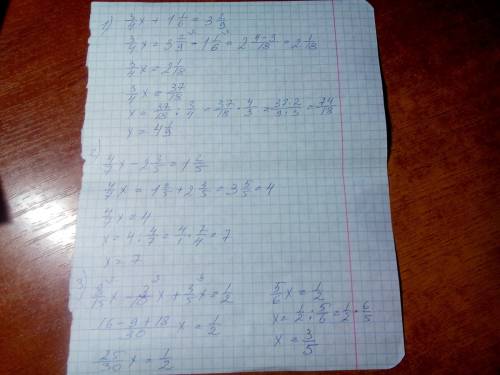 1) 3/4 x + 1 1/6 = 3 2/9
3/4 x = 3 2/9 - 1 1/6 = 2 4-3/18 = 2 1/18
3/4 x = 2 1/18
3/4 x = 37/18
x = 37/18 : 3/4 = 37/18 · 4/3 = 37·2/9·3 = 74/18
x = 4 1/9
2)
4/7 x - 2 3/5 = 1 2/5
4/7 x = 1 2/5 + 2 3/5 = 3 5/5 = 4
4/7 x = 4
x = 4 : 4/7 = 4/1 · 7/4 = 7
x = 7
3) 8/15 x - 3/10 x + 3/5 x = 1/2
16-9+18/30 x = 1/2
25/30 x = 1/2
5/6 x = 1/2
x = 1/2 : 5/6 = 1/2 · 6/5
x = 3/5